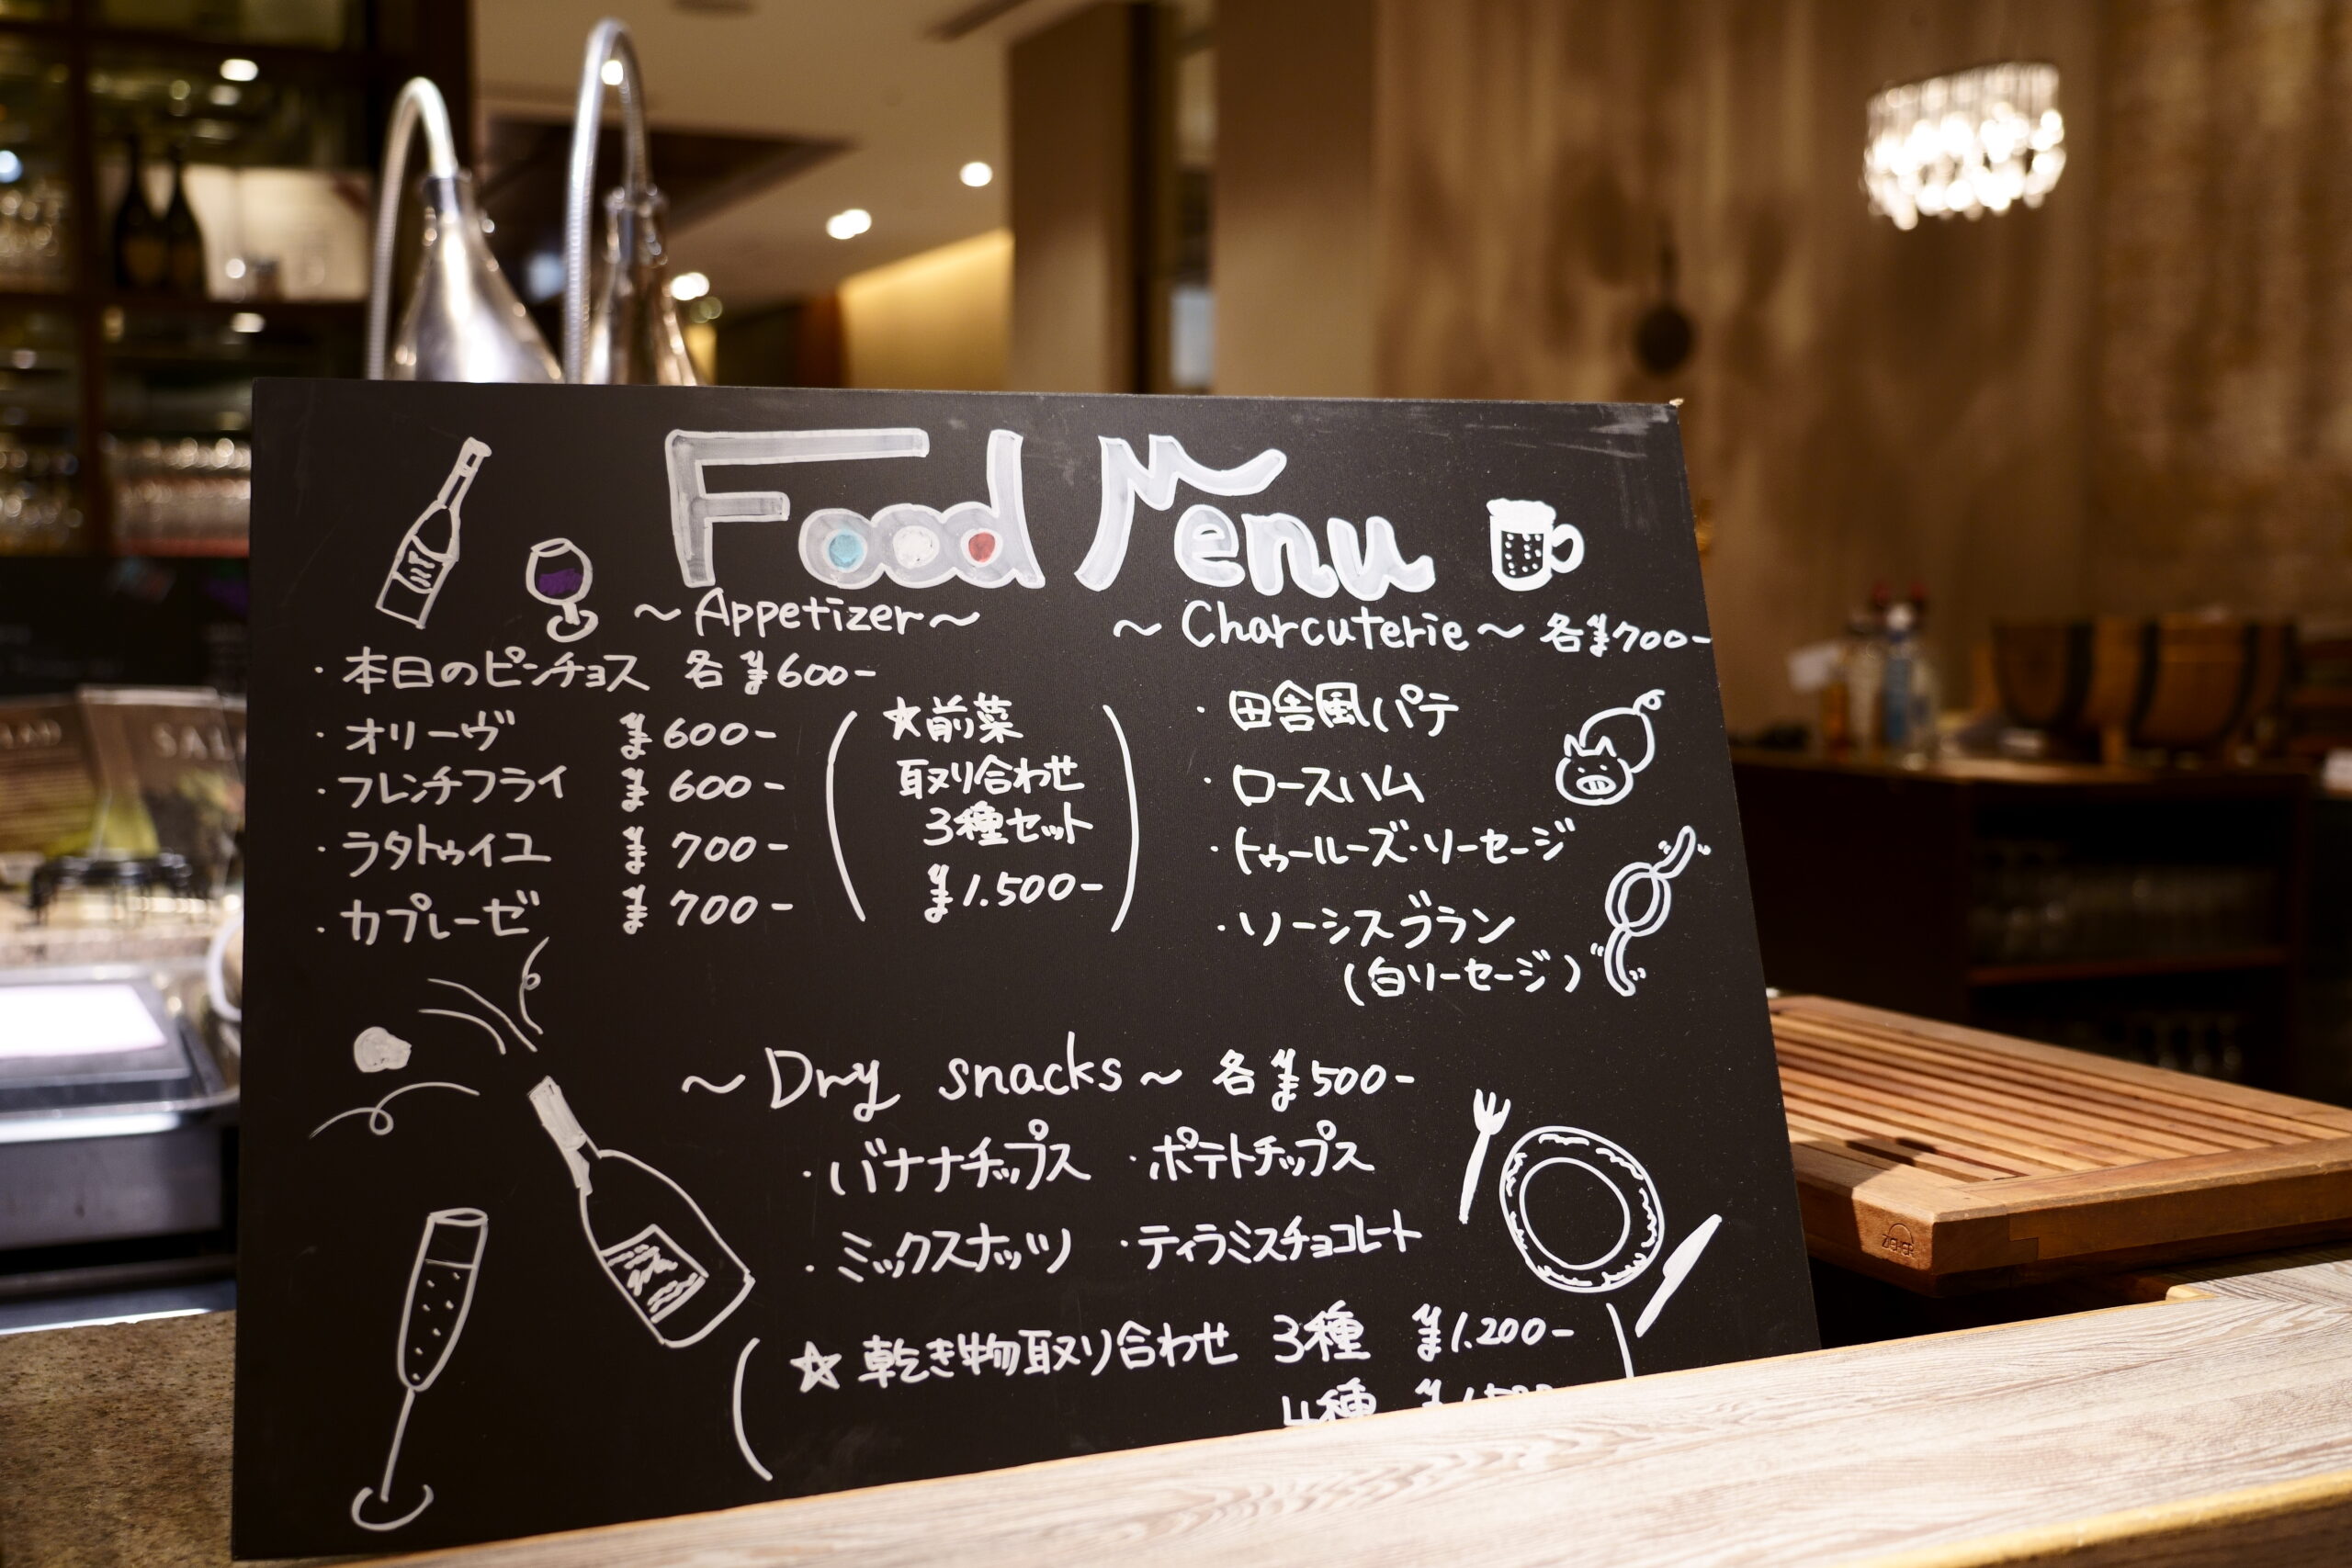 Food Menu
~Appetizer~
・本日のピンチョス 各¥600-
・オリーヴ ¥600-
・フレンチフライ ¥600-
・ラタトゥイユ ¥700-
・カプレーゼ ¥700-
(★前菜
取り合わせ
3種セット
¥1.500-)
~Charcuterie~ 各¥700-
・田舎風パテ
・ロースハム
・トゥールーズ・ソーセージ
・ソーシスブラン
(白ソーセージ)
~Dry snacks~ 各¥500-
・バナナチップス ・ポテトチップス
・ミックスナッツ ・ティラミスチョコレート
(☆乾き物取り合わせ 3種 ¥1.200-)
4種
ZIEHER